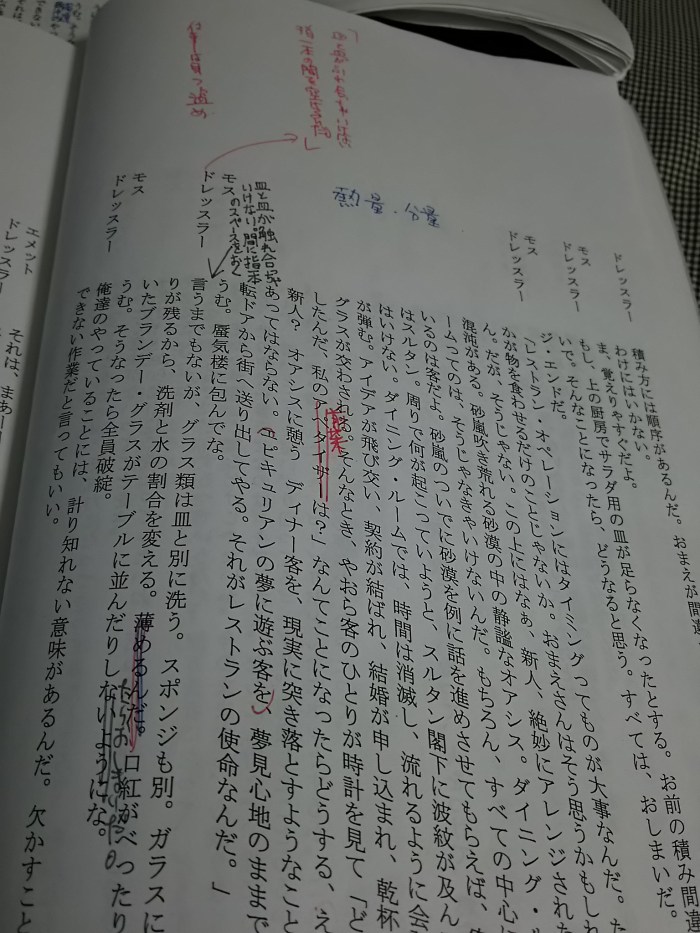 ドレッスラー
積み方には順序があるんだ。おまえが間違
わけにはいかない。
モス
ま、覚えりやすぐだよ。
ドレッスラー
もし、上の厨房でサラダ用の皿が足らなくなったとする。お前の積み間違
いで。そんなことになったら、どうなると思う。すべては、おしまいだ。
ジ・エンドだ。
モス
ドレッスラー
「レストラン・オペレーションにはタイミングってものが大事なんだ。た
かが物を食わせるだけのことじゃないか。おまえさんはそう思うかもしれ
ん。だが、そうじゃない。この上にはなぁ、新人、絶妙にアレンジされた
混沌がある。砂嵐吹き荒れる砂漠の中の静謐なオアシス。ダイニング・ル
ームってのは、そうじゃなきゃいけないんだ。もちろん、すべての中心に
いるのは客だよ。砂嵐のついでに砂漠を例に話を進めさせてもらえば、
はスルタン。周りで何が起こっていようと、スルタン閣下に波紋が及ん
はいけない。ダイニング・ルームでは、時間は消滅し、流れるように会
が弾む。アイデアが飛び交い、契約が結ばれ、結婚が申し込まれ、乾杯
グラスが交わされる。そんなとき、やおら客のひとりが時計を見て「ど
したんだ、私の は?」なんてことになったらどうする、え
新人? オアシスに憩う ディナー客を、現実に突き落とすようなこと
あってはならない。エピキュリアンの夢に遊ぶ客を、夢見心地のままで
転ドアから街へ送り出してやる。それがレストランの使命なんだ。」
モス
うむ。蜃気楼に包んでな。
ドレッスラー
言うまでもないが、グラス類は皿と別に洗う。スポンジも別。ガラスに
りが残るから、洗剤と水の割合を変える。薄めるんだ。口紅がべったり
いたブランデー・グラスがテーブルに並んだりしないようにな。
モス
うむ。そうなったら全員破綻。
ドレッスラー
俺達のやっていることには、計り知れない意味があるんだ。欠かすこと
できない作業だと言ってもいい。
エメット
ドレッスラー
それは、まあ
熱量・分量
前菜
皿と皿が触れ合っちゃ
いけない。間に指一本
のスペースをおく